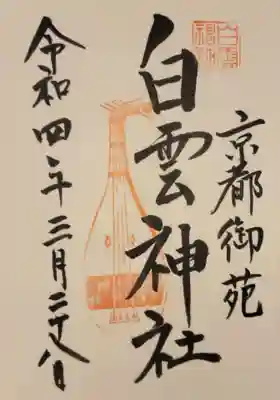 京都御苑
白雲神社
令和四年三月二十八日